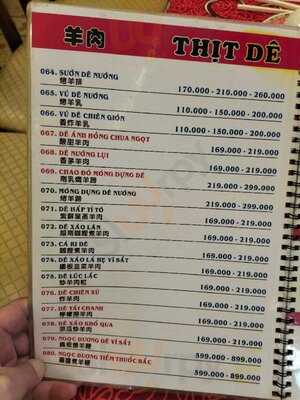 羊肉 THỊT DÊ
064. SƯỜN DÊ NƯỚNG
烤羊排 170.000 - 210.000 - 260.000
065. VÚ DÊ NƯỚNG
烤羊乳 110.000 - 150.000 - 200.000
066. VÚ DÊ CHIÊN GIÒN
香炸羊乳 110.000 - 150.000 - 200.000
067. DÊ ÁNH HỒNG CHUA NGỌT
酸甜羊肉 169.000 - 219.000
068. DÊ NƯỚNG LỤI
香茅羊肉 169.000 - 219.000
069. CHAO ĐỎ MÓNG DÊ
南乳羊蹄 219.000 - 299.000
070. MÓNG DỰNG DÊ NƯỚNG
烤羊蹄 219.000 - 299.000
071. DÊ HẤP TÍ TÔ
紫蘇葉蒸羊肉 169.000 - 219.000
072. DÊ XÀO LĂN
169.000 - 219.000
073. CÀ RI DÊ
咖喱煮羊肉 169.000 - 219.000
074. DÊ XÀO LÁ HẸ VỈ SẮT
鐵板韭菜羊肉 169.000 - 219.000
075. DÊ LÚC LẮC
炒羊肉粒 169.000 - 219.000
076. DÊ CHIÊN XÙ
炸羊肉 169.000 - 219.000
077. DÊ TÁI CHANH
檸檬撈羊肉 169.000 - 219.000
078. DÊ XÀO KHỔ QUA
涼瓜炒羊肉 169.000 - 219.000
079. NGỌC DƯƠNG DÊ VỈ SẮT
599.000 - 899.000
080. NGỌC DƯƠNG TIỀM THUỐC BẮC
599.000 - 899.000